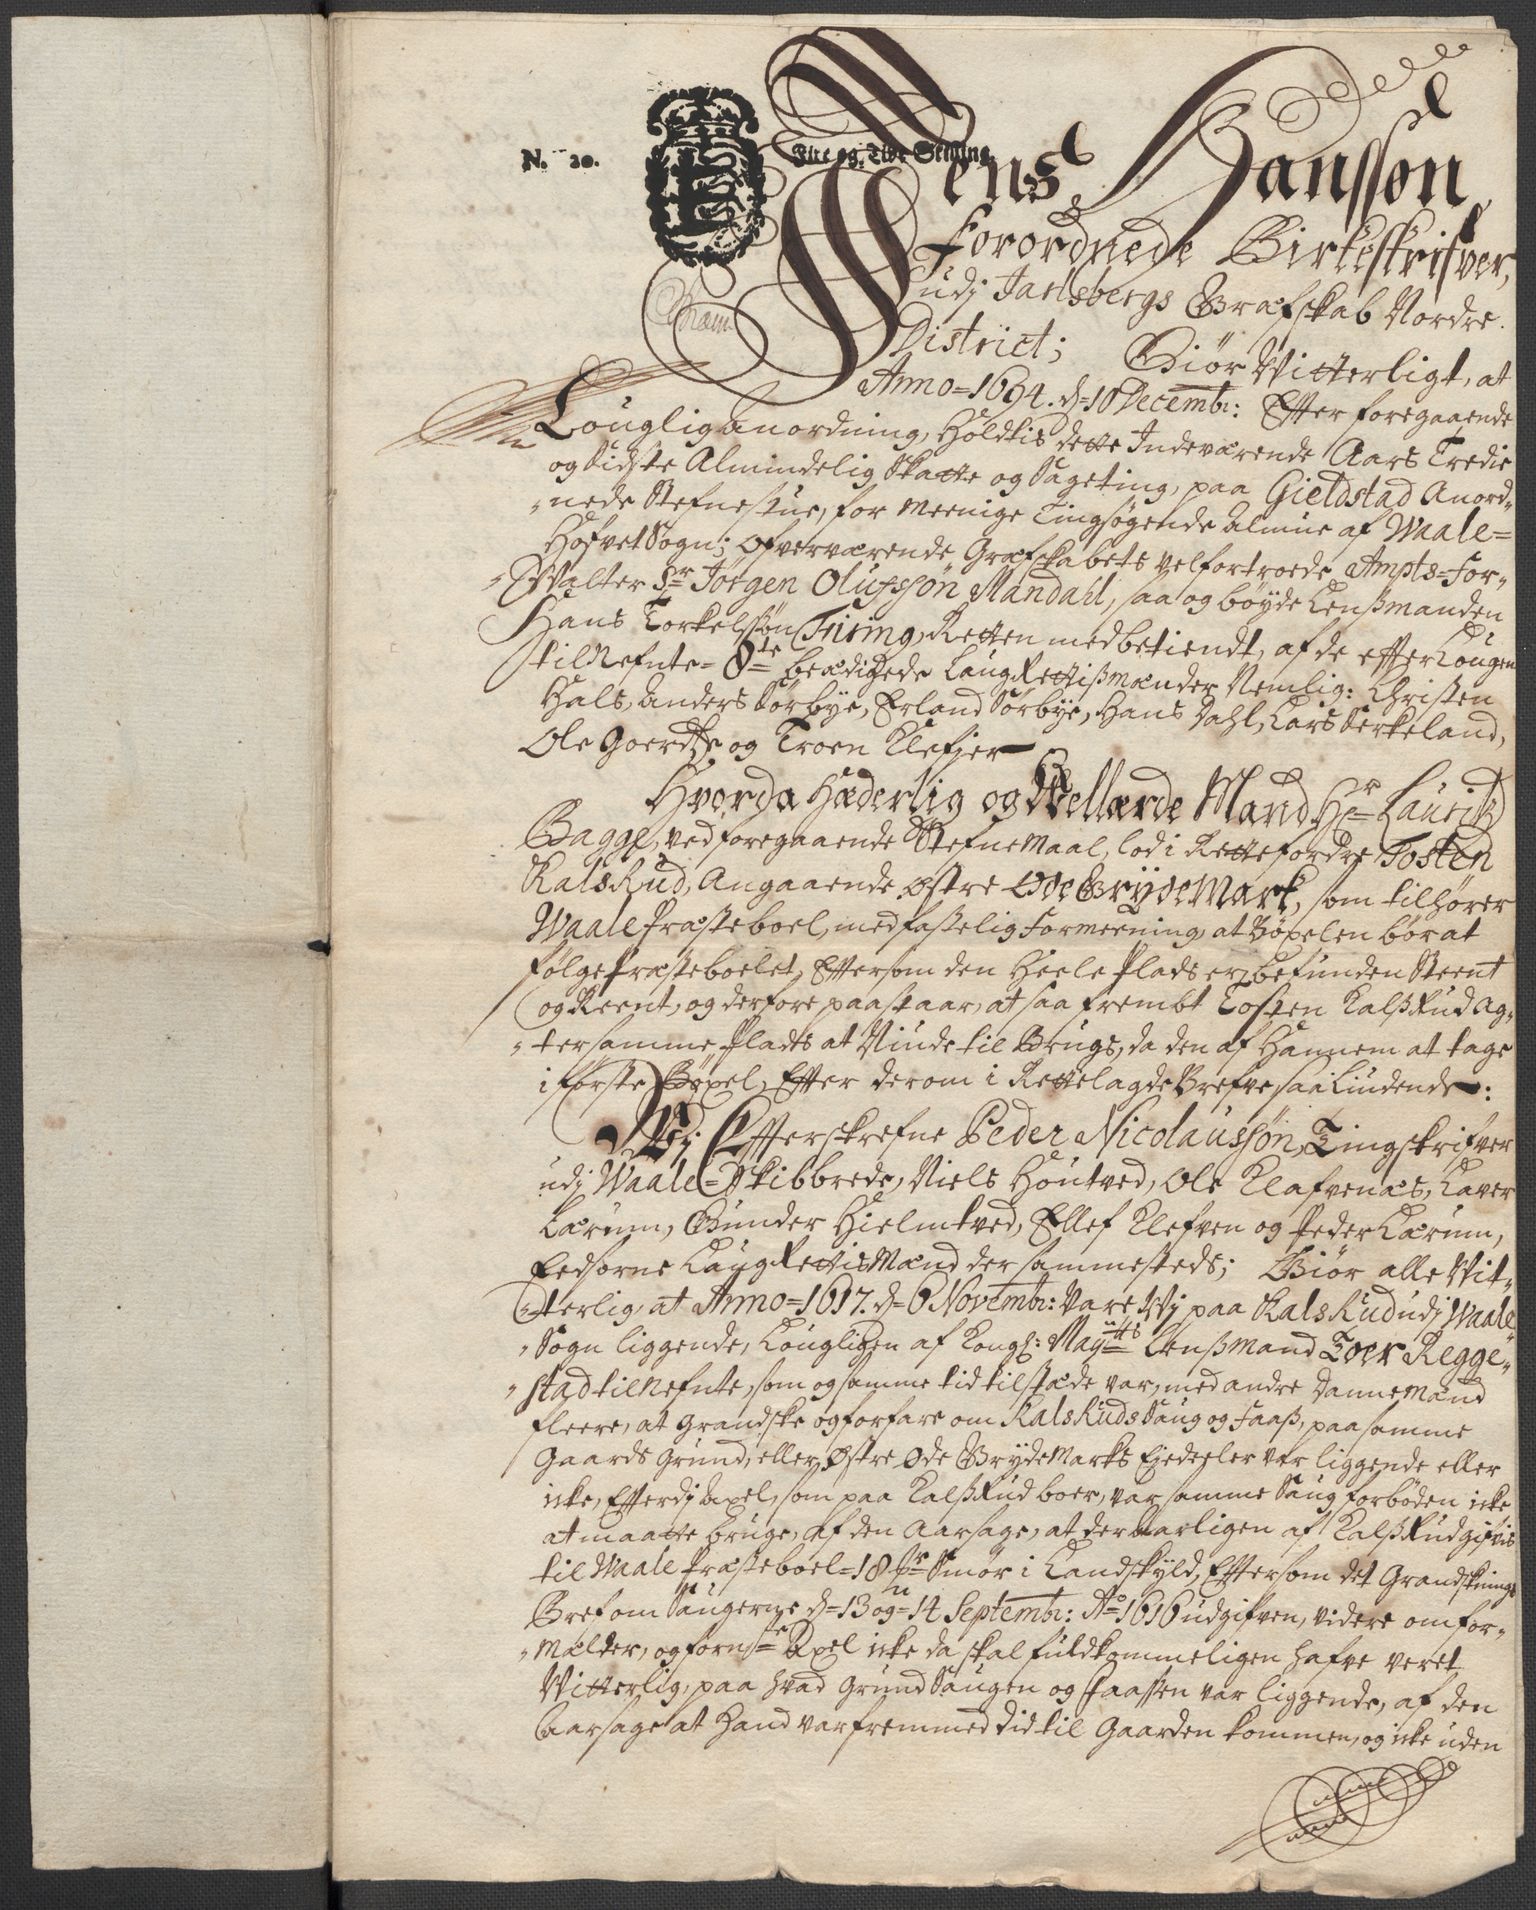 N. 20.
Fire og Tive Skilling
Jens Hanssøn
Forordnede Birkeskrifver,
udj Jarlsbergs Græfskab Nordre
District; Giør Witterligt, at
Anno=1694. d=18 Decembr: Effter foregaaende
Louglig Anordning, Holdtis dette Indeværende Aars Tredie
og Sidste Almindelig Skatte og Sageting, paa Gieldstad Anord-
nede Stefnestue, for Meenige Tingsøgende Almue af Waale=
Høfvet Sogn; Ofverværende Græfskabets Velfortroede Ampts=For-
Walter Sr Jørgen Olufssøn Mandahl, saa og bøyde Lenßmanden
Hans Torkelssøn Friing, Retten medbetiendt, af de effter Lougen
tilNefnte= 8te beædigede LaugRettißmænder Nemlig: Christen
Hals, Anders Sørbye, Erland Sørbye, Hans Dahl, Lars Serkeland,
Ole Goerdsøe og Troen Klefjer
Hvorda Hæderlig og Wellærde Mand Hr Lauritz
Bagge, ved foregaaende Stefnemaal, lod i Rettefordre Tosten
KalsRud, Angaaende østre Øde Brydemark, som tilhører
Waale Præsteboel, med fastelig Formeening, at Bøxelen bør at
følge Præsteboelet, Effter som den Heele Plads er befunden Steent
og Reent, og derfore paastaar, at saa frembt Tosten KalßRud Ag-
ter samme Plads at Niude til Brugs, da den af Hannem at tage
i første Bøxel, Effter derom i Rettelagde Brefve saa Liudende:
Wj Effterskrefne Peder Nicolaussøn, Tingskrifver
udj Waale=Skibbrede, Niels Houtved, Ole Klafvenæs, Laver
Lærum, Gunder Hielmtved, Ellef Klefven og Peder Lærum,
Eedsorne LaugRettisMænd der sammesteds; Giør alle Wit-
terlig, at Anno=1617. d=6 Novembr: Vare Wj paa KalsRud udj Waale
Sogn liggende, Lougligen af Kongl: Maytts Lenßmand Toer Regge-
stad tilNefnte, som og samme tid tilstæde var, med andre Dannemænd
fleere, at Grandske og forfare om KalsRuds Saug og Faaß, paa samme
Gaards Grund, eller Østre Øde Brydemarks Ejedeeler vær liggende eller
icke, Efferdj Axel, som paa KalßRud boer, var samme Saug forbøden icke
at maatte bruge, af den Aarsage, at der Aarligen af KalßRud gifvis
til Waale Præsteboel=18 Smør i Landskyld, Effter som det Grandsknings
Bref om Saugerne d=13 og=14 Septembr: Ao 1616 udgifven, videre omfor-
mælder, og fornte Axel icke da skal fuldkommeligen hafve veret
Witterlig, paa hvad Grund Saugen og Faassen var liggende, af den
Aarsage at Hand var fremmed did til Gaarden kommen, og icke uden